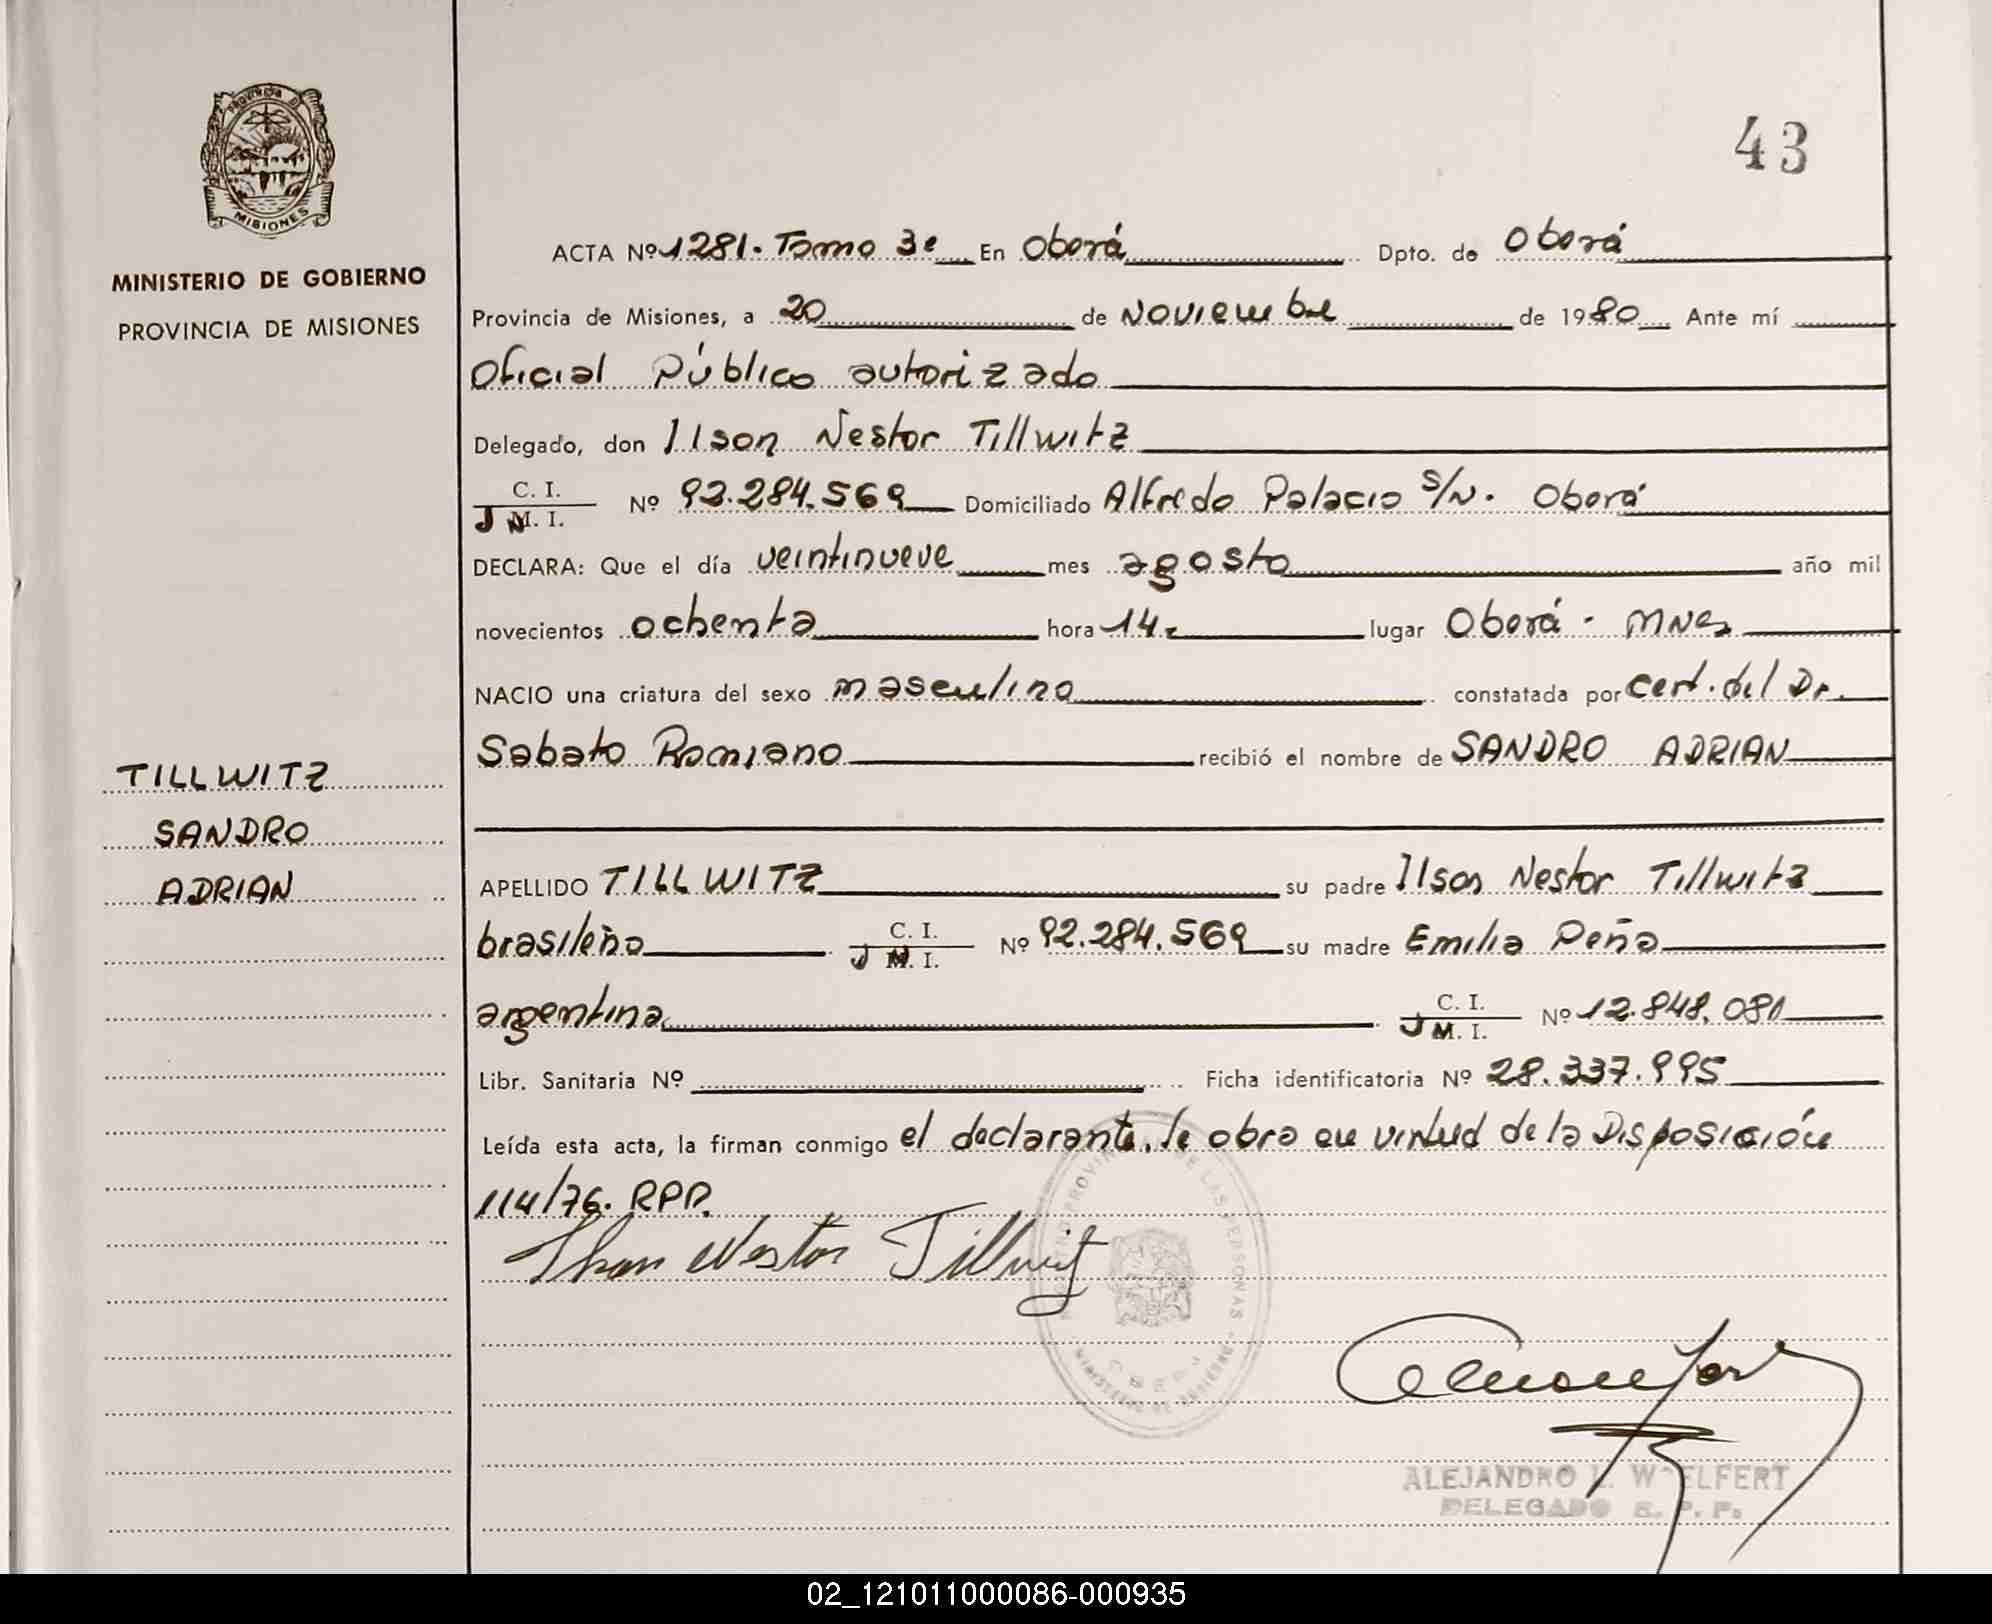 PROVINCIA DE
MISIONES
MINISTERIO DE GOBIERNO
PROVINCIA DE MISIONES
43
ACTA Nº 1281. Tomo 3º En Oberá Dpto. de Oberá
Provincia de Misiones, a 20 de Noviembre de 1980 Ante mí
Oficial Público autorizado
Delegado, don Ilson Nestor Tillwitz
C. I.
M. I. Nº 92.284.569 Domiciliado Alfredo Palacio S/N. Oberá
DECLARA: Que el día veintinueve mes agosto año mil
novecientos ochenta hora 14 lugar Oberá - Mnes
NACIO una criatura del sexo masculino constatada por cert. del Dr.
Sabato Romano recibió el nombre de SANDRO ADRIAN
TILLWITZ
SANDRO
ADRIAN
APELLIDO TILLWITZ su padre Ilson Nestor Tillwitz
brasileño C. I.
M. I. Nº 92.284.569 su madre Emilia Peña
argentina C. I.
M. I. Nº 12.848.081
Libr. Sanitaria Nº Ficha identificatoria Nº 28.337.995
Leída esta acta, la firman conmigo el declarante. Se obra en virtud de la Disposición
114/76. RPP.
Ilson Nestor Tillwitz
DE LAS PERSONAS
MINISTERIO DE GOBIERNO
ALEJANDRO L. WOELFERT
DELEGADO R. P. P.
02_121011000086-000935